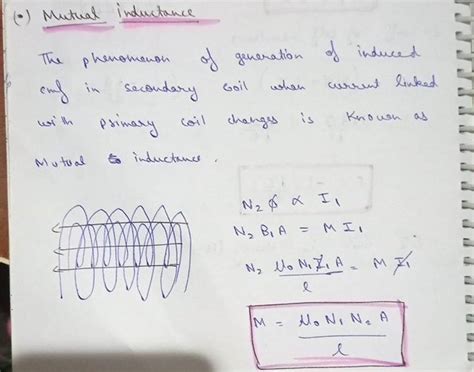 (•) Mutual inductance
The phenomenon of generation of induced
emf in secondary coil when current linked
with primary coil changes is known as
Mutual inductance.
N₂ ϕ ∝ I₁
N₂ B₁A = M I₁
N₂ μ₀ N₁ I₁ A / l = M I₁
M = μ₀ N₁ N₂ A / l